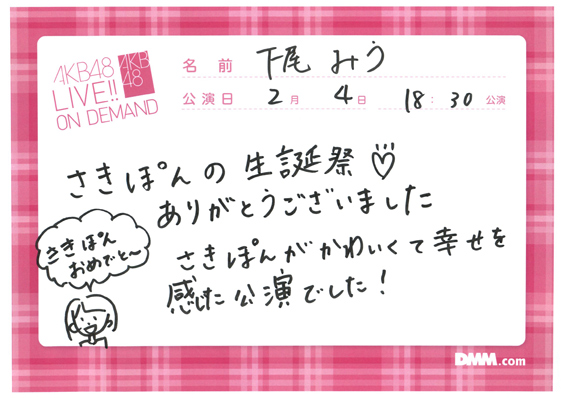 AKB48
LIVE!!
ON DEMAND
AKB
48
名前 下尾 みう
公演日 2月 4日 18:30 公演
さきぽんの 生誕祭♡
ありがとうございました
さきぽん
おめでと〜
さきぽんがかわいくて幸せを
感じた公演でした!
DMM.com